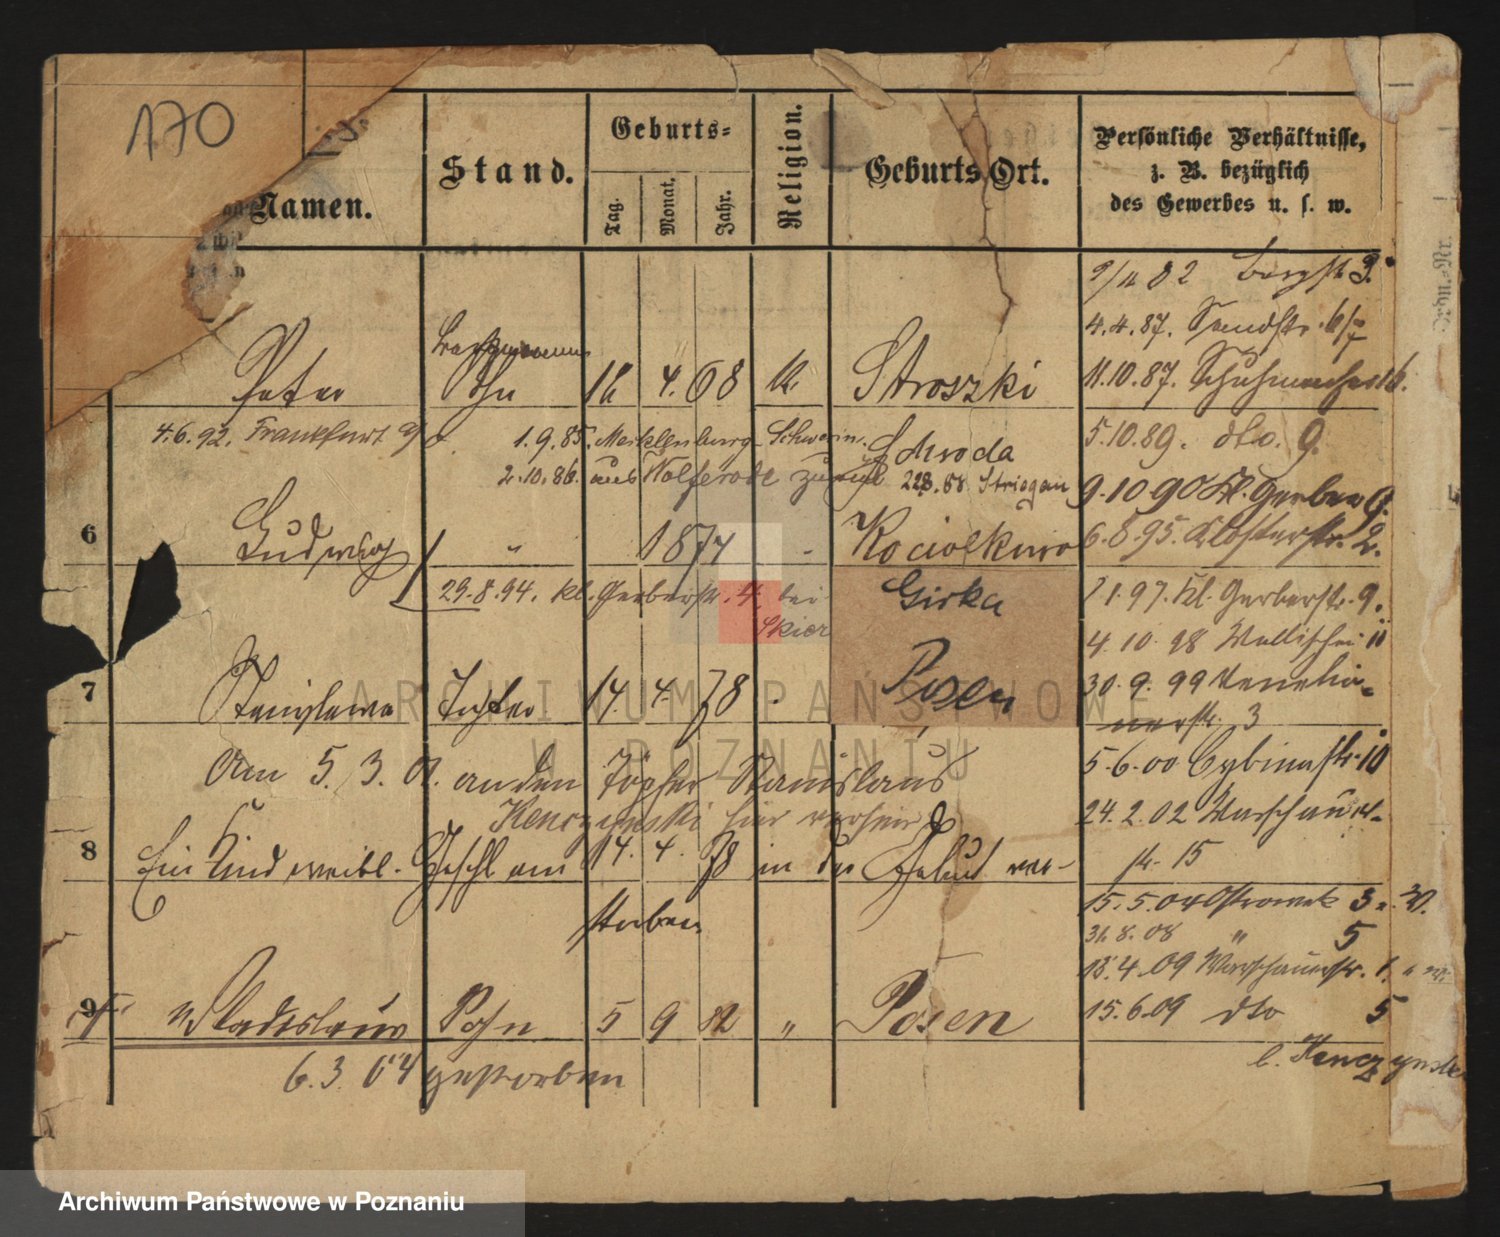 170
Namen.
Stand.
Geburts-
Tag.
Monat.
Jahr.
Religion.
Geburts Ort.
Persönliche Verhältnisse,
z. B. bezüglich
des Gewerbes u. s. w.
Peter
Sohn
16 4. 68 k.
Stroszki
4.6.92. Frankfurt a/O.
1.9.85. Mecklenburg-Schwerin.
2.10.86. aus Wolferode zurück
Schroda
Striegau
6
Ludwig
"
1874
Kociolkowo
29.8.94. kl. Gerberstr. 4. bei
Skier
Girka
7
Stanislawa
Tochter
14. 4. 78
Posen
Am 5. 3. 01. an den Töpfer Stanislaus
Kenczynski hier verheir
8
Ein Kind weibl. Geschl am 14. 4. 78 in der Geburt ver-
storben
9
Wladislaus
Sohn
5 9 82 "
Posen
6. 3. 04 gestorben
9/11 82 Bergstr
4.4.87. Sandstr.
11.10.87. Schuhmacherstr 16.
5.10.89. dto. 9.
9.10 90 Kl. Gerber 9.
6.8.95. Klosterstr. 2.
1.97. Kl. Gerberstr. 9.
4. 10. 98 Wallischei 11
30. 9. 99 Venetia-
nerstr. 3
5.6.00 Cybinastr. 10
24. 2. 02 Warschauer-
str. 15
15. 5. 04 Ostrowek 3
31. 8. 08 " 5
13. 4. 09 Warschauerstr. 1
15. 6. 09 dto 5
b. Kenczynski
Ordn.-Nr.
ARCHIWUM PAŃSTWOWE
W POZNANIU
Archiwum Państwowe w Poznaniu